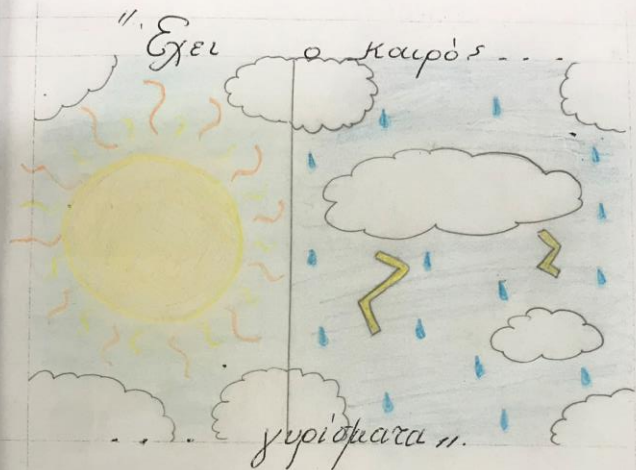 "Έχει ο καιρός...
.... γυρίσματα".